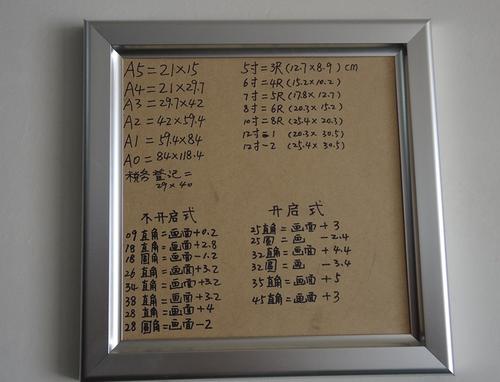 A5=21×15
A4=21×29.7
A3=29.7×42
A2=42×59.4
A1=59.4×84
A0=84×118.4
税务登记=
29×40
5寸=3R(12.7×8.9)cm
6寸=4R(15.2×10.2)
7寸=5R(17.8×12.7)
8寸=6R(20.3×15.2)
10寸=8R(25.4×20.3)
12寸=1 (20.3×30.5)
12寸-2 (25.4×30.5)
不开启式
09直角=画面+0.2
18直角=画面+2.8
18圆角=画面-1.2
26直角=画面+3.2
34直角=画面+3.2
38直角=画面+3.2
28直角=画面+4
28圆角=画面-2
开启式
25直角=画面+3
25圆=画-2.4
32直角=画面+4.4
32圆=画-3.4
35直角=画面+5
45直角=画面+3